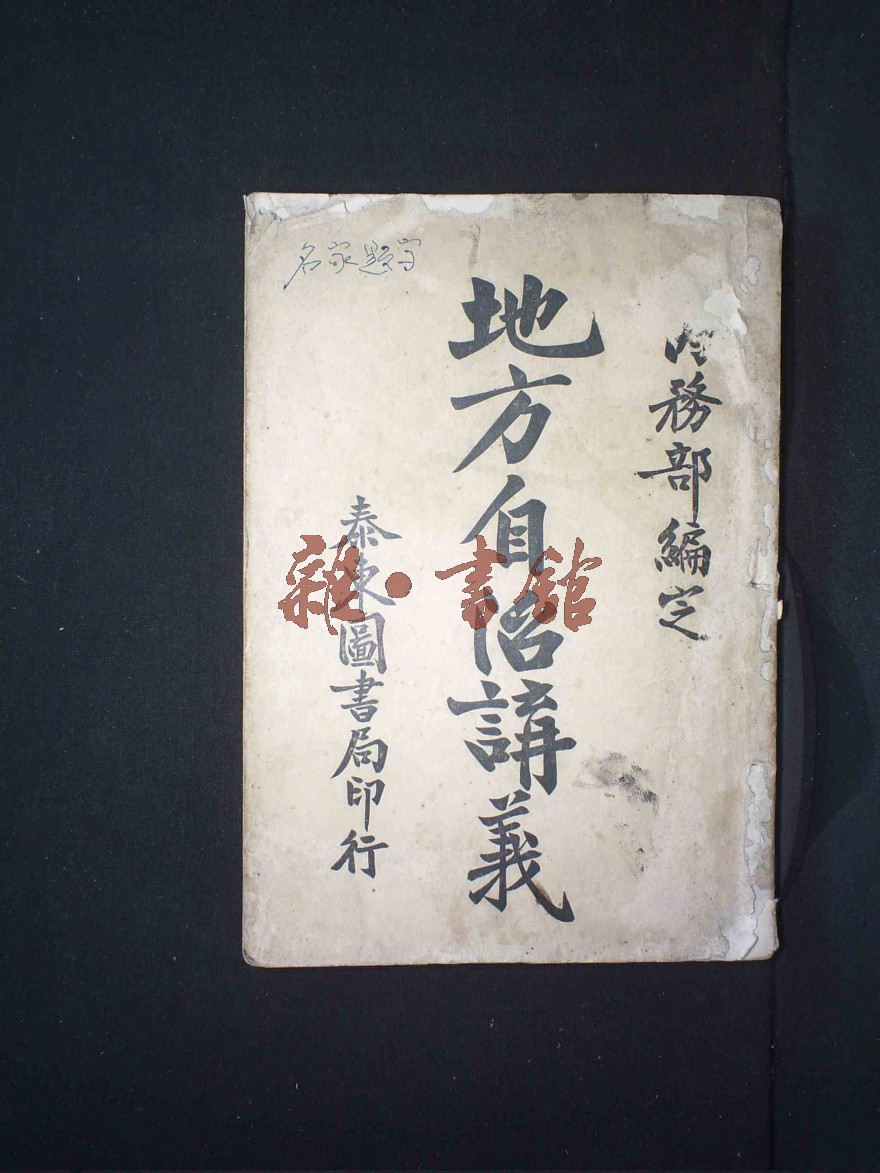 內務部編定
地方自治講義
泰東圖書局印行
名家題字
雜·書館